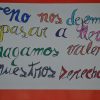 reno nos dejemos
pasar a
hagamos valer
nuestros derechos